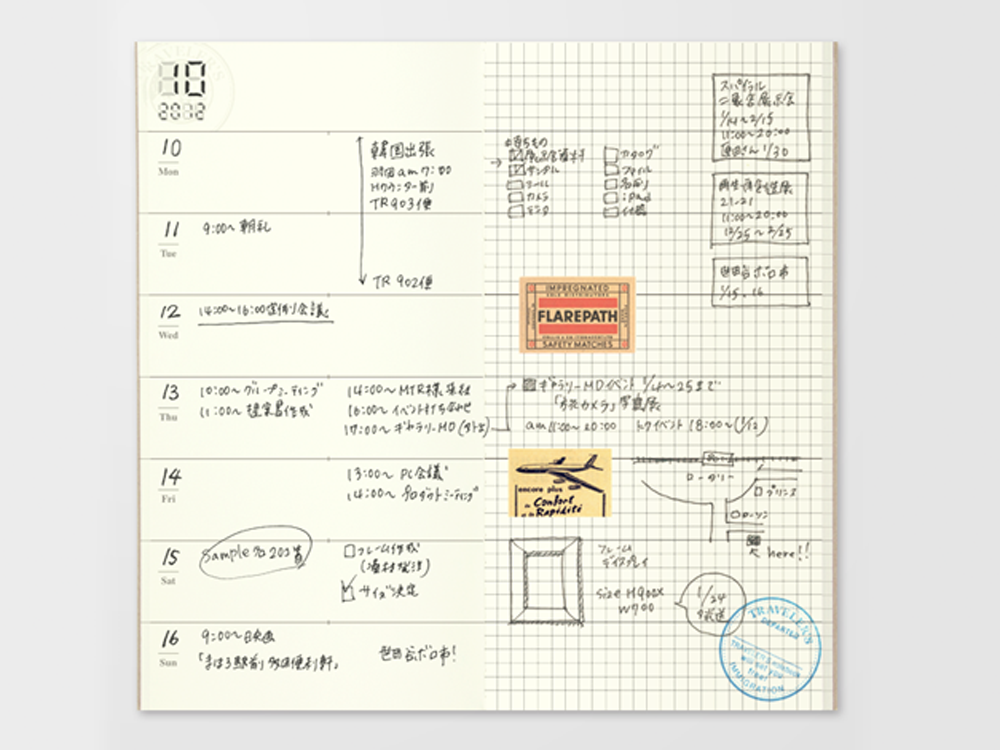 10
2012
10
Mon
韓国出張
羽田am7:00
Hカウンター前
TR903便
11
Tue
9:00〜 朝礼
TR 902便
12
Wed
14:00〜16:00定例会議
13
Thu
10:00〜グループミーティング
11:00〜提案書作成
14:00〜MTR様来社
16:00〜イベント打ち合わせ
17:00〜ギャラリーMD
14
Fri
13:00〜 PC会議
14:00〜 プロダクトミーティング
15
Sat
Sample 202
フレーム作成
サイズ決定
16
Sun
9:00〜日映画
「まほろ駅前多田便利軒」
世田谷ボロ市!
持ちもの
サンプル
ツール
カメラ
カタログ
ファイル
名刺
iPad
スパイラル
展示会
11:00〜20:00
1/30
21-21
11:00〜20:00
世田谷ボロ市
1/15.16
IMPREGNATED
FLAREPATH
SAFETY MATCHES
ギャラリーMDイベント 1/14〜25まで
カメラ」写真展
am11:00〜20:00 イベント 18:00〜(1/12)
encore plus
de Confort
et de Rapidité
ロータリー
プリンス
ローソン
here!!
フレーム
ディスプレイ
size H900×
W700
1/24
TRAVELER'S
DEPARTED
IMMIGRATION